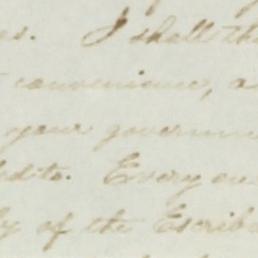 es. I shall th
convenience, a
your governm
edito. Every on
ly of the Escrib